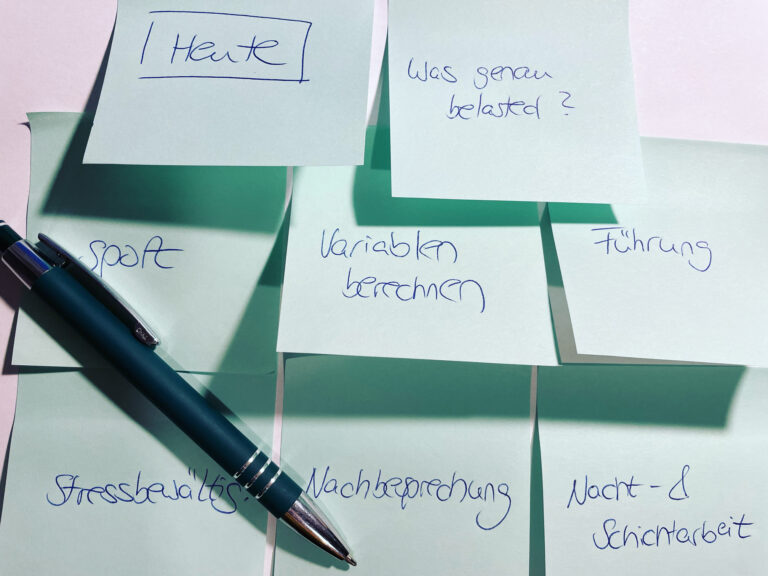 Heute
Was genau
belasted ?
Sport
Variablen
berechnen
Führung
Stressbewältig.
Nachbesprechung
Nacht- &
Schichtarbeit